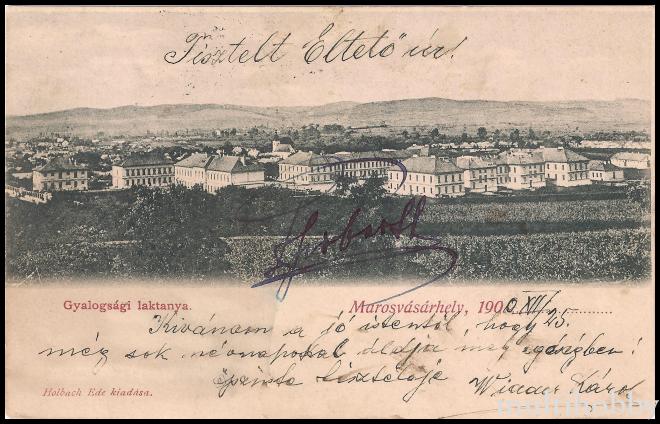 Tisztelt Éltető úr!
Gyalogsági laktanya.
Marosvásárhely, 1900 XII/25.
Kivánom a jó istentől, hogy
még sok névnapokat áldja meg egésségben!
őszinte tisztelője
Károly
Holbach Ede kiadása.